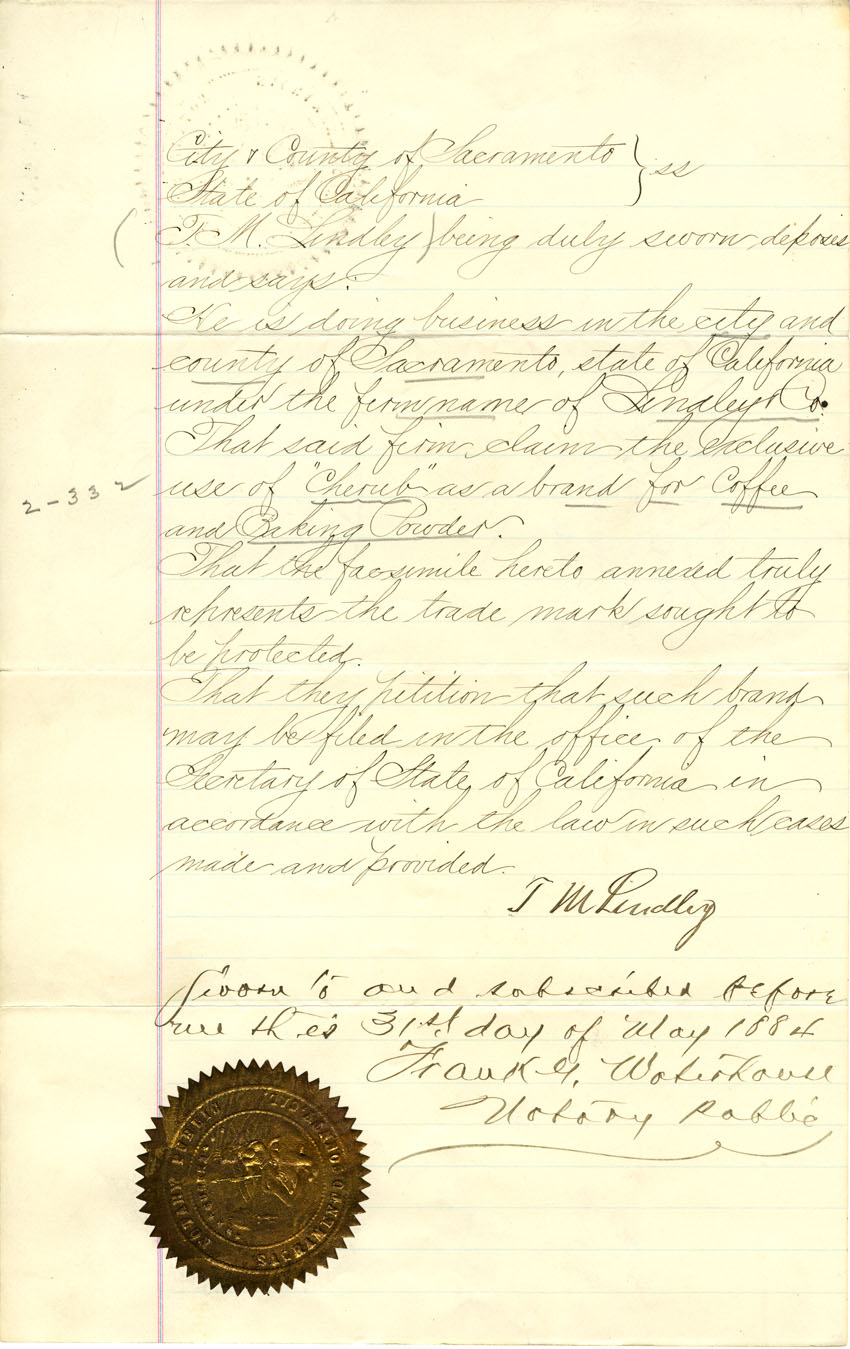 City & County of Sacramento } ss
State of California
(T. M. Lindley) being duly sworn, deposes
and says:
He is doing business in the city and
county of Sacramento, state of California
under the firm name of Lindley & Co.
That said firm claim the exclusive
use of "Cherub" as a brand for Coffee
2-332
and Baking Powder.
That the facsimile hereto annexed truly
represents the trade mark sought to
be protected.
That they petition that such brand
may be filed in the office of the
Secretary of State of California in
accordance with the law in such cases
made and provided.
T M Lindley
Sworn to and subscribed before
me this 31st day of May 1884
Frank G. Waterhouse
Notary Public
NOTARY PUBLIC
SACRAMENTO